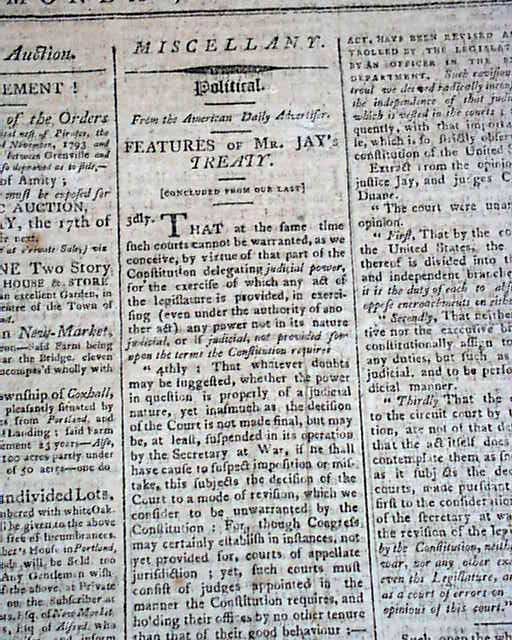 Auction.
EMENT !
of the Orders
of Pirates, the
November, 1793 and
between Grenville and
of Amity ;
must be exposed for
AUCTION,
AY, the 17th of
next,
at Private Sale,) viz
NE Two Story
HOUSE & STORE
an excellent Garden, in
centre of the Town of
Neck-Market,
Said Farm being
near the Bridge, eleven
encompas'd wholly with
ownship of Coxhall,
pleasantly situated by
from Portland, and
Landing ; said Farm
15 years—Also,
100 acres partly under
of 50 acre—one do
ndivided Lots,
mbered with white Oak.
ll be given to the above
free of incumbrances.
House in Portland,
will be Sold, too
Any Gentleman wish
of the above at Private
on the Subscriber at
Esq. of New Market,
Esq. of Alfred, who
and inform
MISCELLANY.
Political.
From the American Daily Advertiser.
FEATURES OF MR. JAY's
TREATY.
[CONCLUDED FROM OUR LAST]
3dly. THAT at the same time
such courts cannot be warranted, as we
conceive, by virtue of that part of the
Constitution delegating judicial power,
for the exercise of which any act of
the legislature is provided, in exerci-
sing (even under the authority of ano
ther act) any power not in its nature
judicial, or if judicial, not provided for
upon the terms the Constitution requires
" 4thly : That whatever doubts
may be suggested, whether the power
in question is properly of a judicial
nature, yet inasmuch as the decision
of the Court is not made final, but may
be, at least, suspended in its operation
by the Secretary at War, if he shall
have cause to suspect imposition or mis-
take, this subjects the decision of the
Court to a mode of revision, which we
consider to be unwarranted by the
Constitution : For, though Congress
may certainly establish in instances, not
yet provided for, courts of appellate
jurisdiction ; yet, such courts must
consist of judges appointed in the
manner the Constitution requires, and
holding their offices by no other tenure
than that of their good behaviour :—
ACT, HAVE BEEN REVISED
TROLLED BY THE LEGISLAT
BY AN OFFICER IN THE
DEPARTMENT. Such revision
trol we deemed radically incon
the independence of that judi
which is vested in the courts ;
quently, with that importa
le, which is so strictly obser
constitution of the United
Extract from the opinion
justice Jay, and judges C
Duane.
" The court were unan
opinion.
" First, That by the co
the United States, the
thereof is divided into
and independent branches
it is the duty of each to
oppose encroachments on either
" Secondly, That neither
tive nor the executive
constitutionally assign to
any duties, but such as
judicial, and to be perfo
dicial manner.
" Thirdly That the
to the circuit court by
tion, are not of that d
that the act itself does
contemplate them as su
as it subjects the dec
courts, made pursuant
first to the consideration
of the secretary at wa
the revision of the legi
by the Constitution, neith
war, nor any other ex
even the Legislature, a
as a court of errors on
opinions of this court."